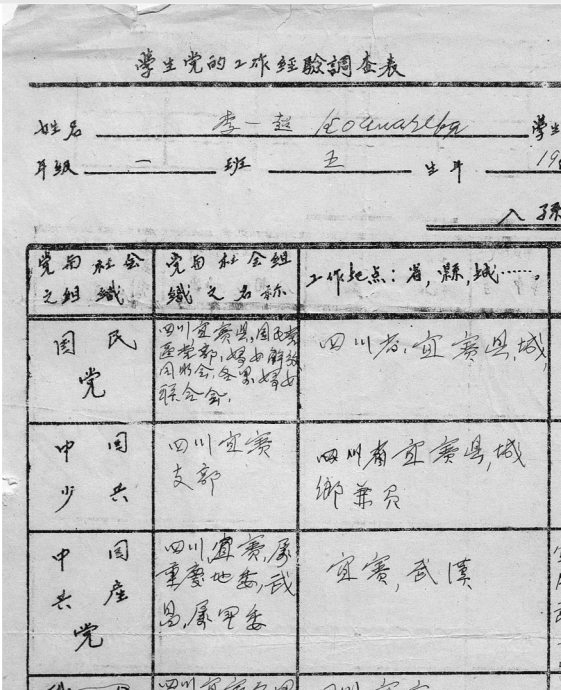 學生党的工作經驗調查表
姓名 李一超 學生
年級 一 班 五 生年 19
入孫
党与社会
之組織
党与社会組
織之名称
工作地点：省，縣，城……。
国民
党
四川宜賓县，国民党
区党部，婦女解放
同盟会，各界婦女
联合会，
四川省，宜賓县，城，
中国
少共
四川宜宾
支部
四川省宜賓县，城
鄉兼有
中国
共産
党
四川，宜賓，属
重慶地委，武
昌，属軍委
宜賓，武漢
四川宜賓